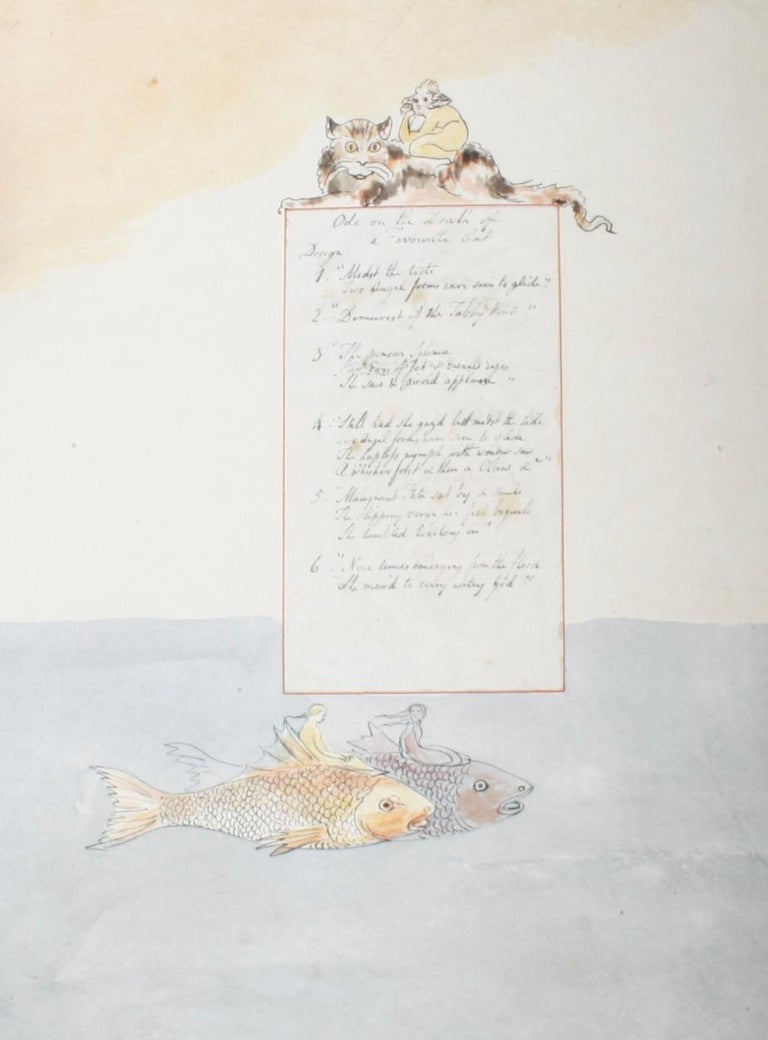 Ode on the Death of
a Favourite Cat
Design.
1. "Midst the tide
Two Angel forms were seen to glide"
2. "Demurest of the Tabby kind"
3 "The pensive Selima
Her Ears of Jet & Emrald eyes
She saw & purr'd applause"
4 "Still had she gaz'd but midst the tide
Two Angel forms were seen to glide
The hapless nymph with wonder saw
A Whisker first & then a Claw &c"
5. "Malignant Fate sat by & smild
The slippery verge her feet beguild
She tumbled headlong in"
6 "Nine times emerging from the flood
She mew'd to every watry God"